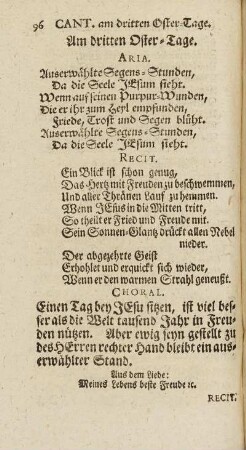 96 CANT. am dritten Oster-Tage.
Am dritten Oster-Tage.
ARIA.
Auserwählte Segens-Stunden,
Da die Seele JEsum sieht.
Wenn auf seinen Purpur-Wunden,
Die er ihr zum Heyl empfunden,
Friede, Trost und Segen blüht.
Auserwählte Segens-Stunden,
Da die Seele JEsum sieht.
RECIT.
Ein Blick ist schon genug,
Das Hertz mit Freuden zu beschwemmen,
Und aller Thränen Lauf zu hemmen.
Wenn JEsus in die Mitten tritt,
So theilt er Fried und Freude mit.
Sein Sonnen-Glantz drückt allen Nebel
nieder.
Der abgezehrte Geist
Erhohlet und erquickt sich wieder,
Wenn er den warmen Strahl geneußt.
CHORAL.
Einen Tag bey JEsu sitzen, ist viel bes-
ser als die Welt tausend Jahr in Freu-
den nützen. Aber ewig seyn gestellt zu
des HErren rechter Hand bleibt ein aus-
erwählter Stand.
Aus dem Liede:
Meines Lebens beste Freude ꝛc.
RECIT.